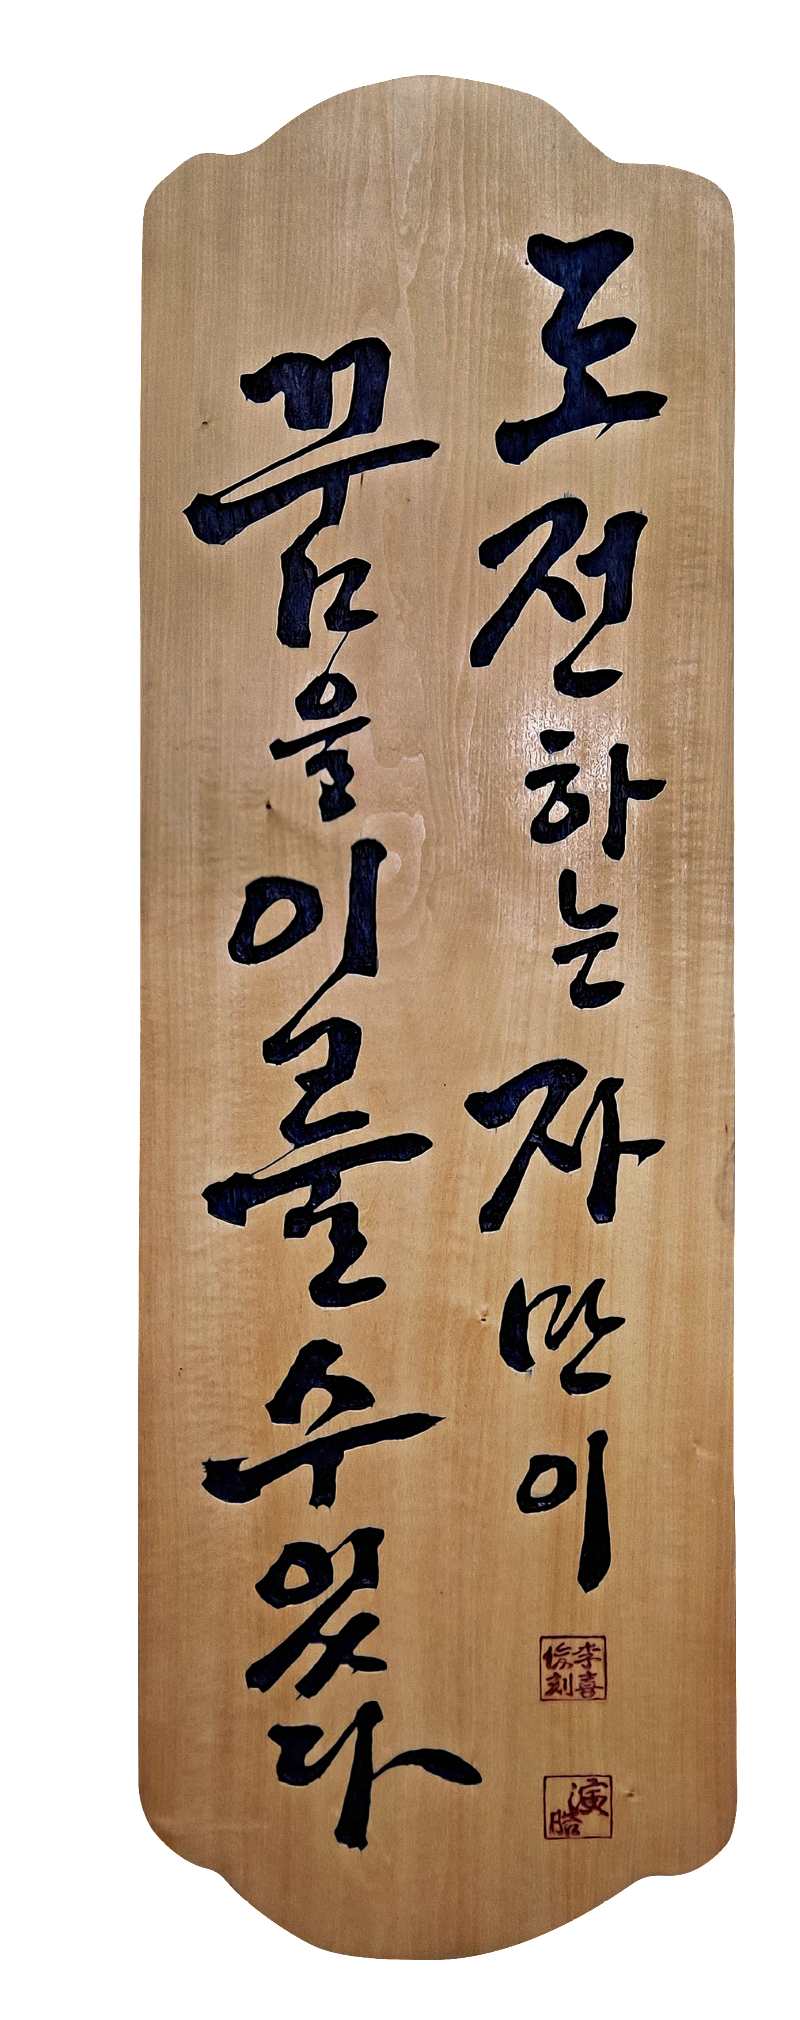 도전하는 자만이
꿈을 이룰 수 있다
李喜
俊刻
演
皓